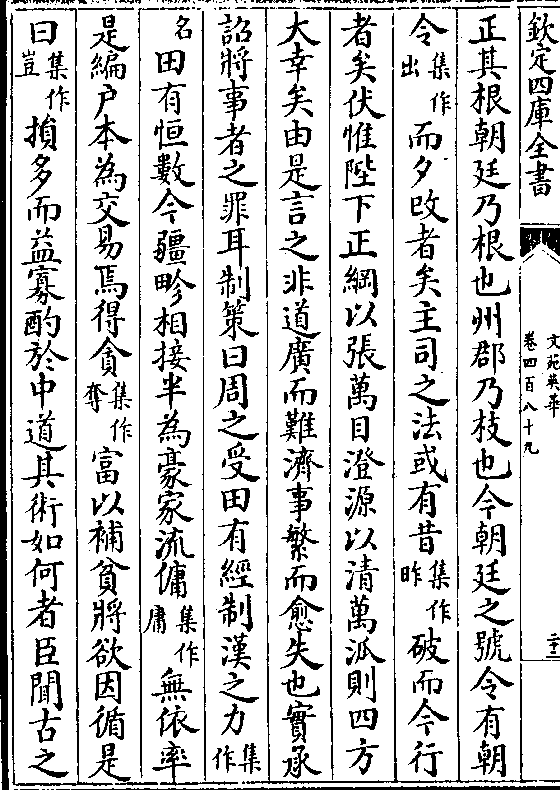 欽定四庫全書
文苑英華
卷四百八十九
二十二
正其根朝廷乃根也州郡乃枝也今朝廷之號令有朝
令集作出而夕改者矣主司之法或有昔集作昨破而今行
者矣伏惟陛下正綱以張萬目澄源以清萬泒則四方
大幸矣由是言之非道廣而難濟事繁而愈失也實承
詔將事者之罪耳制策曰周之受田有經制漢之力集作
名田有恒數今疆畛相接半為豪家流傭集作庸無依率
是編户本為交易焉得貪集作奪富以補貧將欲因循是
曰集作豈損多而益寡酌於中道其術如何者臣聞古之